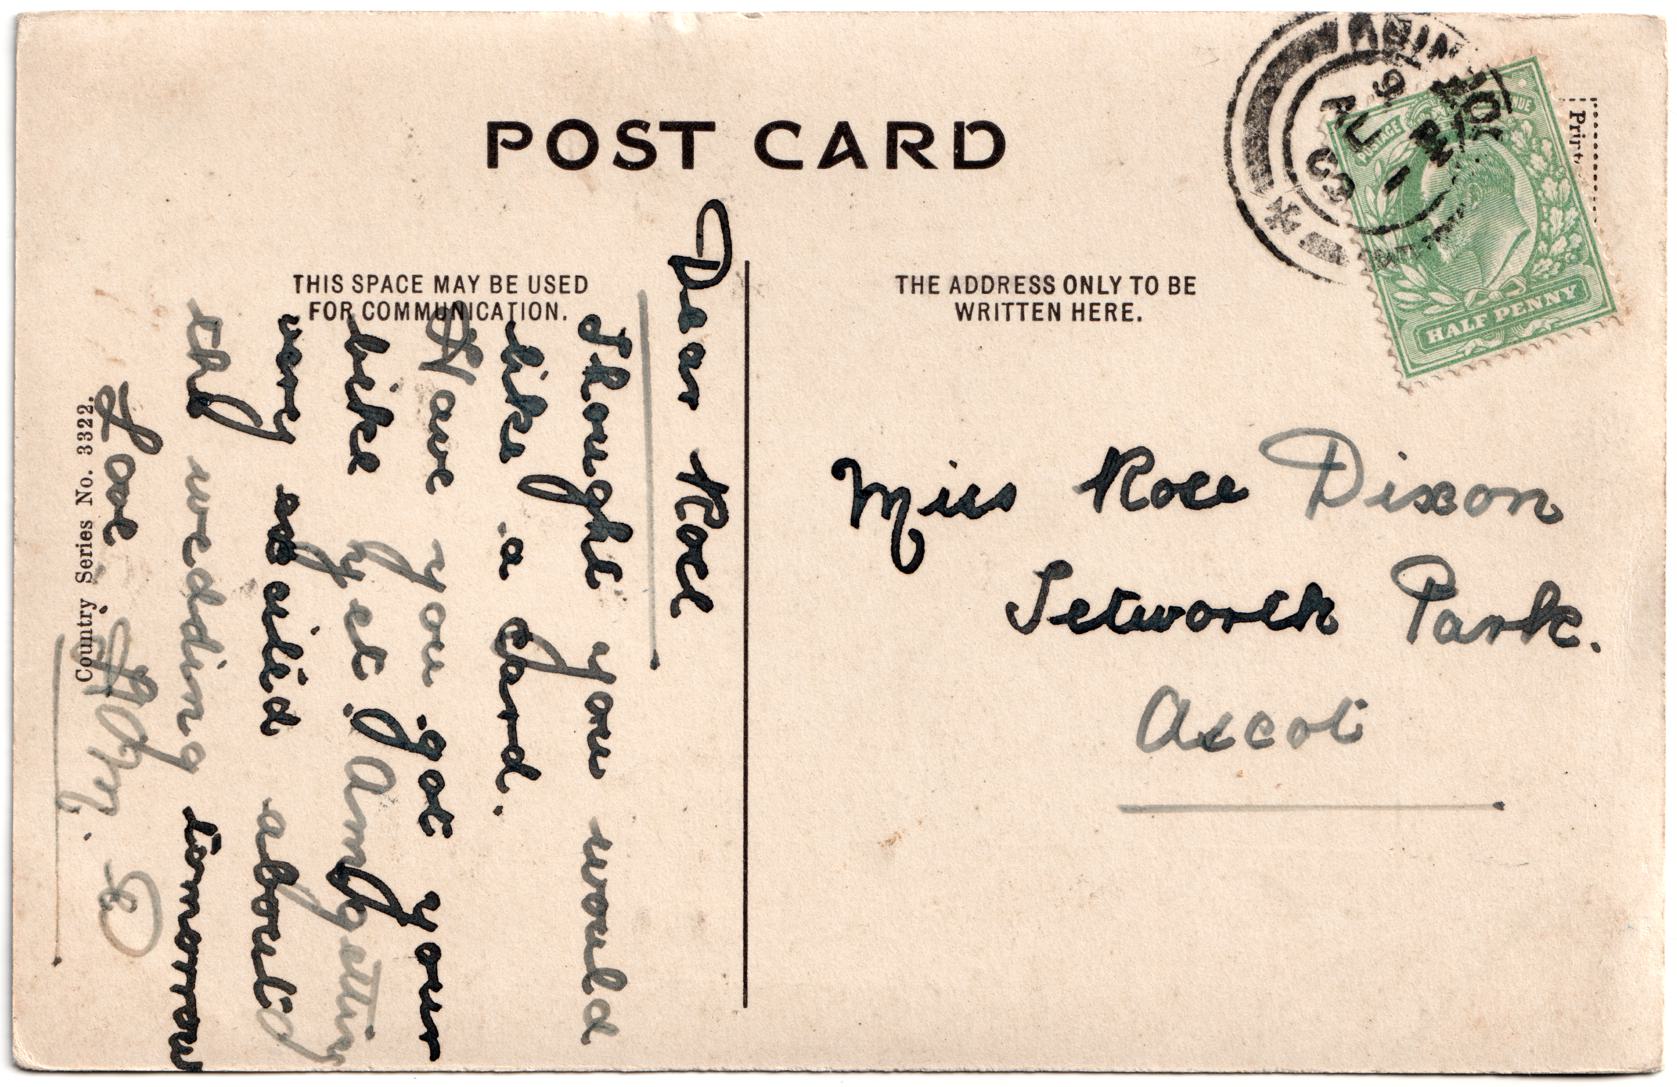 POST CARD
THIS SPACE MAY BE USED
FOR COMMUNICATION.
THE ADDRESS ONLY TO BE
WRITTEN HERE.
Country Series No. 3322.
Dear Rose
Thought you would
like a card.
Have you got your
bike yet. I am getting
very excited about
the wedding tomorrow
Love
Miss Rose Dixon
Park.
Ascot
POSTAGE
HALF PENNY
9 PM
AU 1
09